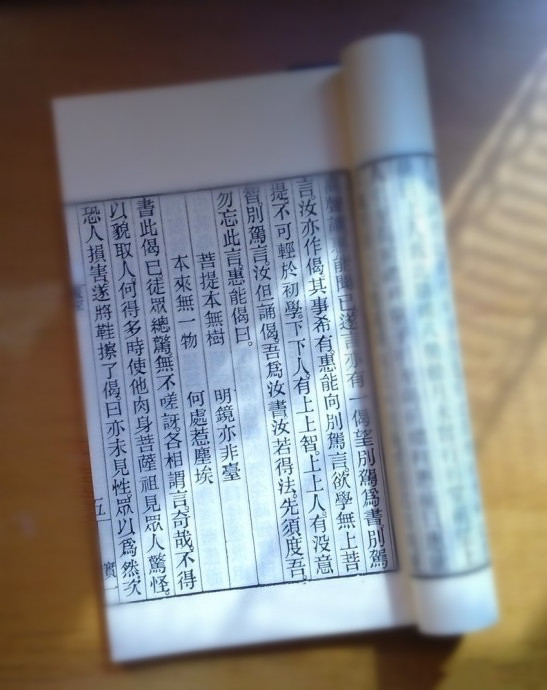 亦有一偈望別駕爲書別駕
言汝亦作偈其事希有惠能向別駕言欲學無上菩
提不可輕於初學下下人有上上智上上人有没意
智別駕言汝但誦偈吾爲汝書汝若得法先須度吾
勿忘此言惠能偈曰
菩提本無樹 明鏡亦非臺
本來無一物 何處惹塵埃
書此偈已徒眾總驚無不嗟訝各相謂言奇哉不得
以貌取人何得多時使他肉身菩薩祖見眾人驚怪
恐人損害遂將鞋擦了偈曰亦未見性眾以爲然次
五